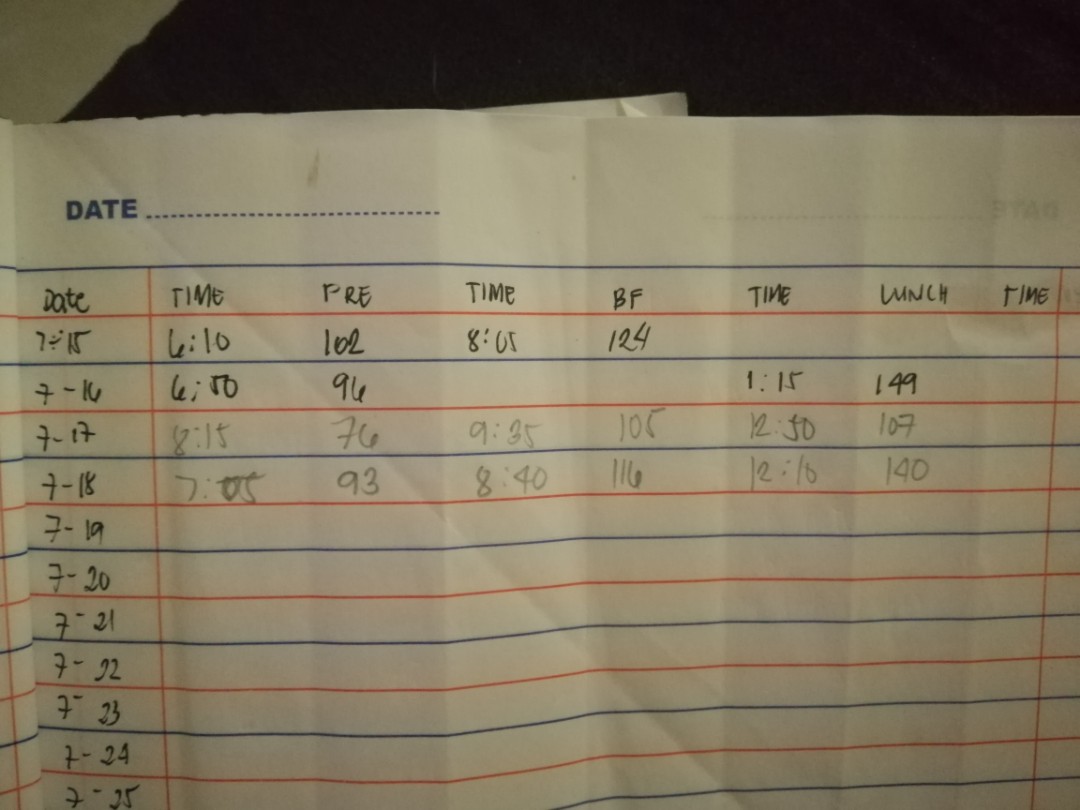 DATE
Date TIME PRE TIME BF TIME LUNCH TIME
7-15 6:10 102 8:05 124
7-16 6:50 96 1:15 149
7-17 8:15 76 9:35 105 12:50 107
7-18 7:05 93 8:40 116 12:10 140
7-19
7-20
7-21
7-22
7-23
7-24
7-25